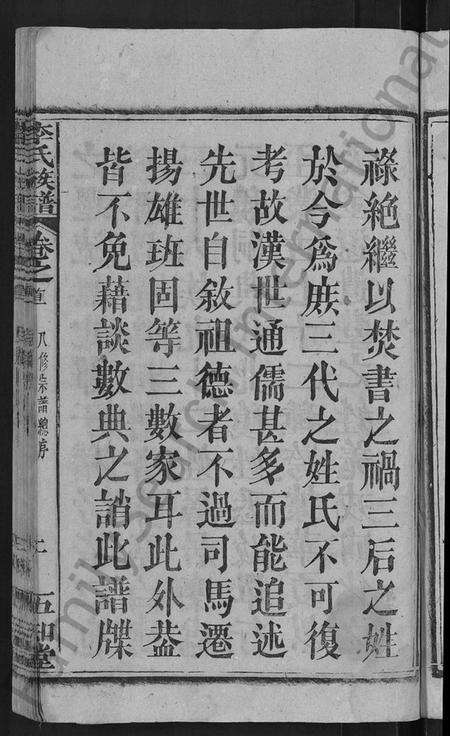 祿絶繼以焚書之禍三后之姓
於今爲庶三代之姓氏不可復
考故漢世通儒甚多而能追述
先世自敘祖德者不過司馬遷
揚雄班固等三數家耳此外葢
皆不免藉談數典之誚此譜牒
李氏族譜 卷之首 八修宗譜總序 二 五知堂
Family Search International